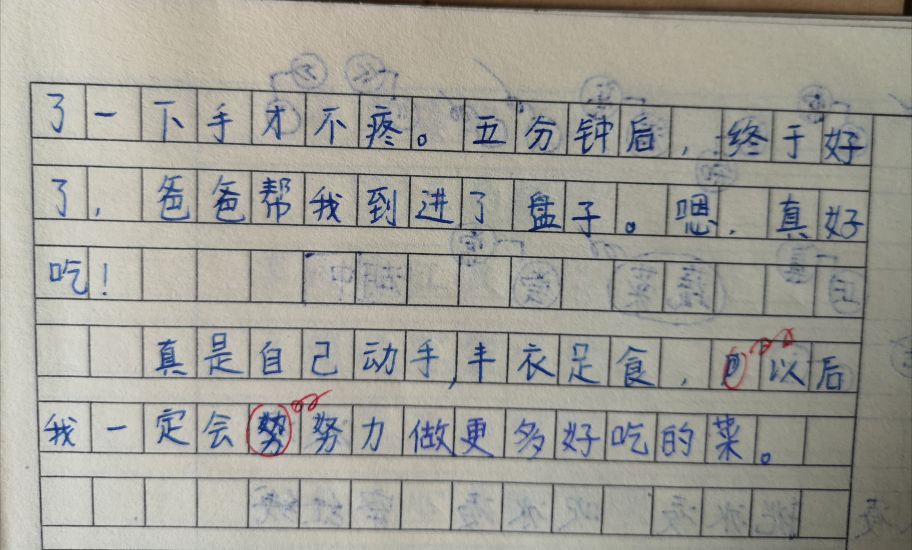 了一下手才不疼。五分钟后，终于好
了，爸爸帮我到进了盘子。嗯，真好
吃！
真是自己动手,丰衣足食，以后
我一定会努力做更多好吃的菜。